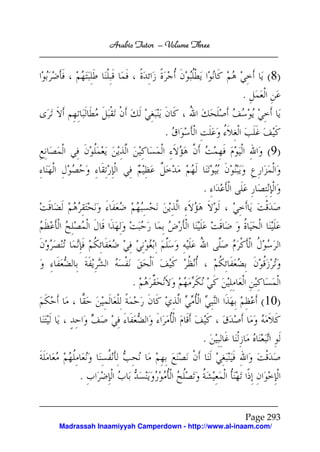 Arabic Tutor – Volume Three
(8) يَا أَخِيْ هُمْ كَانُوا يَطْلُبُوْنَ أُجْرَةً زَائِدَةً ، فَمَا قَبِلْنَا طَلِبَتَهُمْ ، فَأَضْرَبُوْا
عَنِ الْعَمَلِ .
يَا أَخِيْ يُوْسُفَ أَصْلَحَكَ اللهُ ، كَانَ يَنْبَغِيْ لَكَ أَنْ تَقْبَلَ مُطَالَبَاتِهِمِ أَلاَ تَرَى
كَيْفَ غَلَبَ الْغَلاَءُ وَغَلَتِ الْأَسْوَاقُ .
(9) وَاللهِ الْيَوْمَ فَهِمْتُ أَنَّ هَؤُلاَءِ الْمَسَاكِيْنَ الَّذِيْنَ يَعْمَلُوْنَ فِي الْمَصَانِعِ
وَالْمَزَارِعِ وَيَبْنُوْنَ بُيُوْتَنَا لَهُمْ مَدْخَلٌ عَظِيْمٌ فِي الْإِرْتِقَاءِ وَحُصُوْلِ الْهَنَاءِ
وَالْإِنْتِصَارِ عَلَى الْأَعْدَاءِ .
صَدَقْتَ يَاأَخِيْ ، لَوْ لاَ هَؤُلاَءِ الَّذِيْنَ نَحْسِبُهُمْ ضُعَفَاءَ وَنَحْتَقِرُهُمْ لَضَاقَتْ
عَلَيْنَا الْحَيَاةُ وَ ضَاقَتْ عَلَيْنَا الْأَرْضُ بِمَا رَحُبَتْ وَلِهَذَا قَالَ الْمُصْلِحُ الْأَعْظَمُ
الرَّسُوْلُ الْأَكْرَمُ صَلَّى اللهُ عَلَيْهِ وَسَلَّمَ ابْغُوْنِيْ فِيْ ضُعَفَائِكُمْ فَإِنَّمَا تُنْصَرُوْنَ
وَتُرْزَقُوْنَ بِضُعَفَائِكُمْ ، أُنْظُرْ كَيْفَ أَلْحَقَ نَفْسَهُ الشَّرِيْفَةَ بِالضُّعَفَاءِ وَ
الْمَسَاكِيْنِ الْعَامِلِيْنَ كَيْ نُكْرِمَهُمْ وَلاَنَحْقِرَهُمْ .
(10) أَعْظِمْ بِهَذَا النَّبِيِّ الْأُمِّيِّ الَّذِيْ كَانَ رَحْمَةً لِلْعَالَمِيْنَ حَقًّا ، مَا أَحْكَمَ
كَلاَمَهُ وَمَا أَصْدَقَ ، كَيْفَ أَقَامَ الْأُمَرَاءَ وَالضُّعَفَاءَ فِيْ صَفٍّ وَاحِدٍ ، يَا لَيْتَنَا
لَوِ اتَّبَعْنَاهُ مَازِلْنَا غَالِبِيْنَ .
صَدَقْتَ وَاللهِ فَيَنْبَغِيْ لَنَا أَنْ نَصْنَعَ بِهِمْ مَا نُحِبُّ لِأَنْفُسِنَا وَنُعَامِلُهُمْ مُعَامَلَةَ
الْإِخْوَانِ إِذًا تَهْنَأُ الْمَعِيْشَةُ وَتَصْلُحُ الْأُمُوْرُوَيَنْسَدُّ بَابُ الْإِضْرَابِ .
Page 293
Madrassah Inaamiyyah Camperdown - http://www.al-inaam.com/